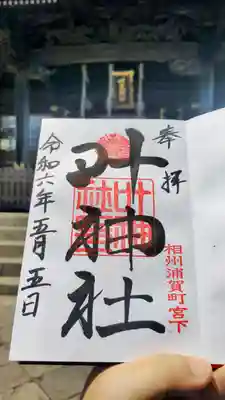 奉拝
叶神社
相州浦賀町宮下
令和六年五月五日